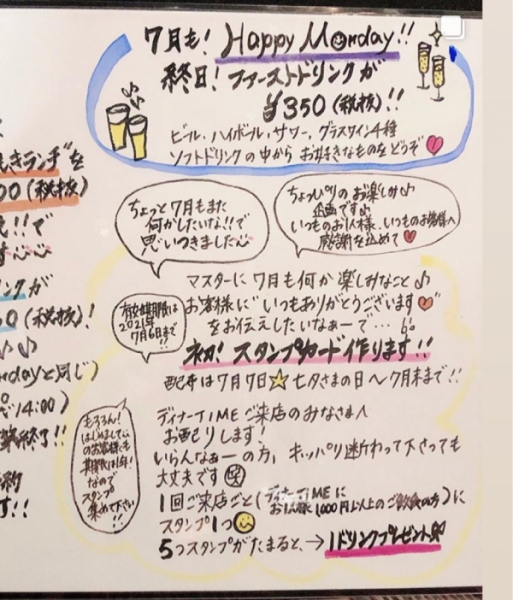 7月も! Happy Monday!!
終日! ファーストドリンクが
¥350(税抜)!!
ビール・ハイボール・サワー、グラスワイン4種
ソフトドリンクの中から お好きなものをどうぞ
きランチ"を
00(税抜)
!!で
ちょっと7月もまた
何かしたいな!!で
思いつきました
ちょっぴりのお楽しみ♪
企画です♪
いつものお1人様、いつものお客様へ
感謝を込めて
ングが
0(税抜)!
♪♪
ndayと同じ)
14:00)
終了!!
約
す!!
マスターに7月も何か楽しみなこと♪
お客様に"いつもありがとうございます"
をお伝えしたいなぁーで…
有効期限は
2021年
7月6日まで!!
ネカ! スタンプカード作ります!!
配布は7月7日☆七夕さまの日～7月末まで!!
ディナーTIMEご来店のみなさまへ
お配りします!
いらんなぁーの方、キッパリ断わって下さっても
大丈夫です 笑
もろろん!
はじめまして
のお客様も
期限は1年!
なので
スタンプ
集めて下さい
!!
1回ご来店ごと(ディナーTIMEに
お1人様1000円以上のご飲食の方)に
スタンプ1つ
5つスタンプがたまると、→1ドリンクプレゼント